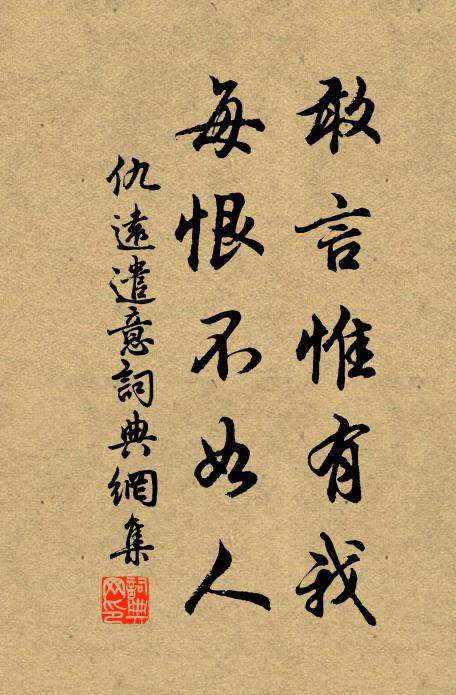 敢言惟有我
每恨不如人
仇遠遣意詞典網集
詞典網印